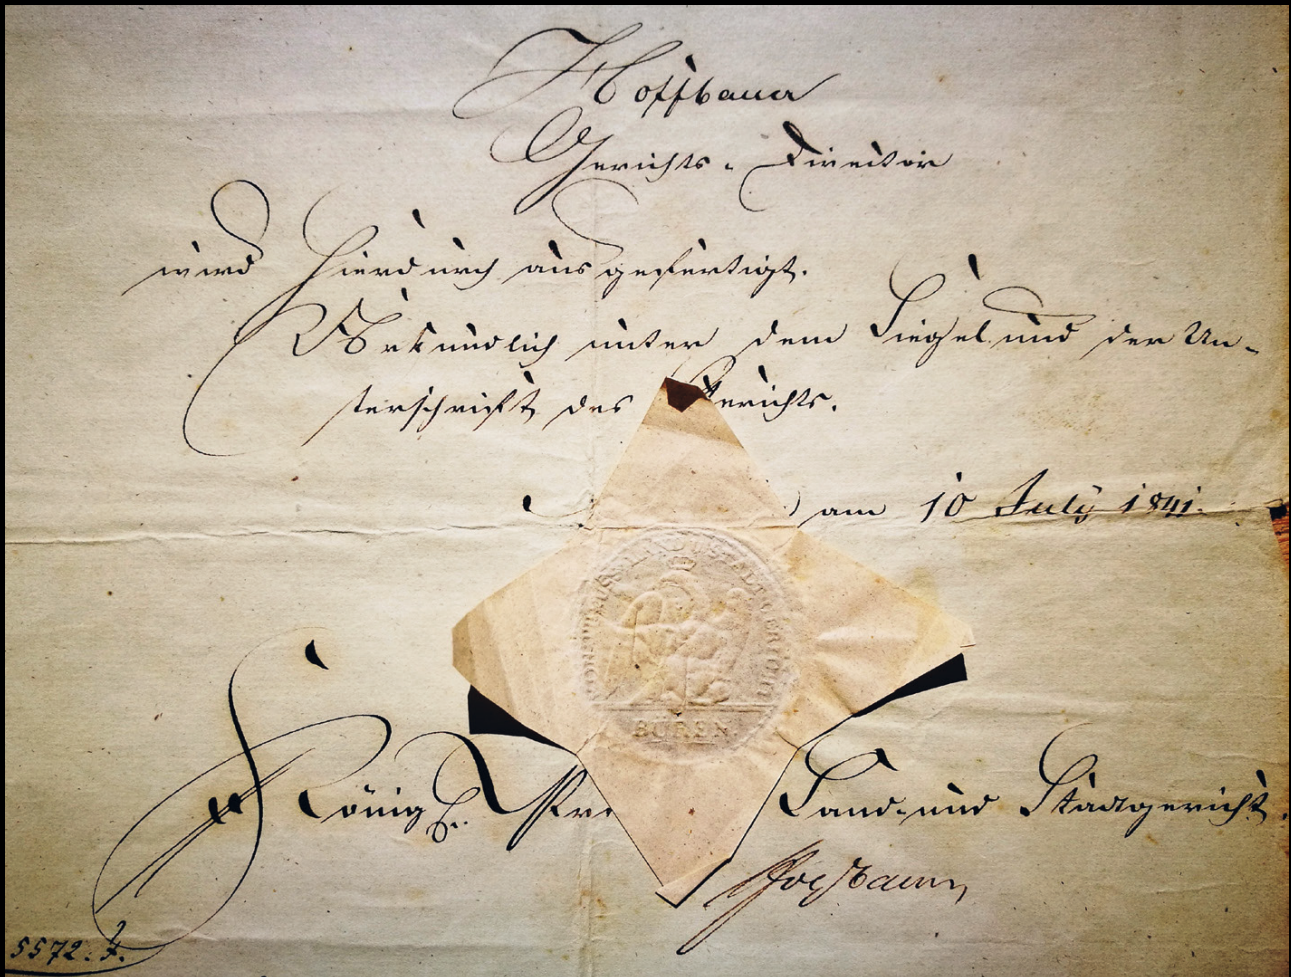 Hoffbauer
Gerichts-Director
wird hierdurch ausgefertigt.
Urkundlich unter dem Siegel und der Un-
terschrift des Gerichts.
am 10 July 1841.
LAND U. STADTGERICHT
BÜREN
Königl. Pre Land- und Stadtgericht.
Hoffbauer
5572. J.